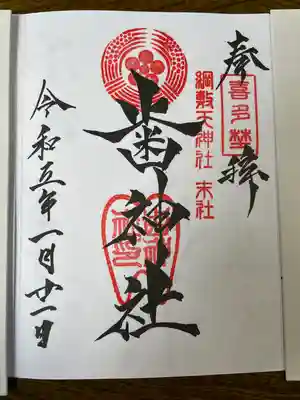 奉拝
喜多埜
綱敷天神社 末社
歯神社
令和五年一月廿一日